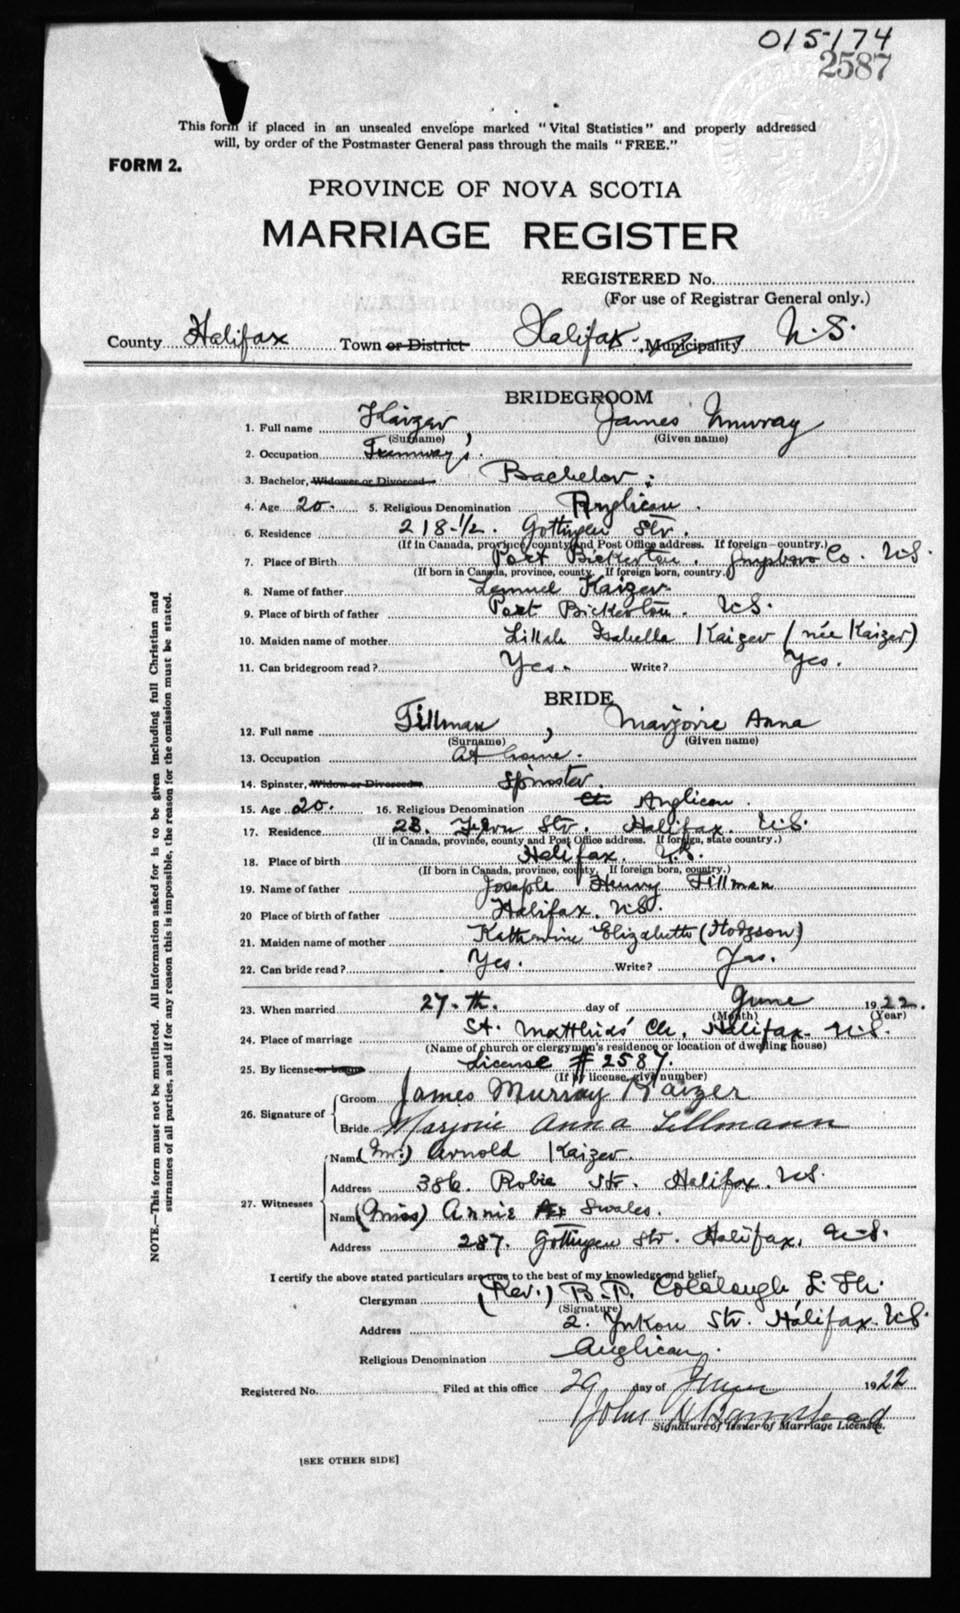 015174
2587
This form if placed in an unsealed envelope marked "Vital Statistics" and properly addressed
will, by order of the Postmaster General pass through the mails "FREE."
FORM 2.
PROVINCE OF NOVA SCOTIA
MARRIAGE REGISTER
REGISTERED No.
(For use of Registrar General only.)
County Halifax Town or District Halifax. Municipality N.S.
BRIDEGROOM
1. Full name Kaizer, James Murray
(Surname) (Given name)
2. Occupation Tramway's.
3. Bachelor, Widower or Divorced Bachelor:
4. Age 20. 5. Religious Denomination Anglican.
6. Residence 218-1/2. Gottingen Str.
(If in Canada, province, county and Post Office address. If foreign—country.)
7. Place of Birth Port Bickerton. Guysboro Co. N.S.
(If born in Canada, province, county. If foreign born, country.)
8. Name of father Lemuel Kaizer.
9. Place of birth of father Port Bickerton. N.S.
10. Maiden name of mother Lillah Isabella Kaizer (née Kaizer)
11. Can bridegroom read? Yes. Write? Yes.
BRIDE
12. Full name Tillman, Marjorie Anna
(Surname) (Given name)
13. Occupation At home.
14. Spinster, Widow or Divorced Spinster
15. Age 20. 16. Religious Denomination Anglican.
17. Residence 23. Str. Halifax. N.S.
(If in Canada, province, county and Post Office address. If foreign, state country.)
18. Place of birth Halifax. N.S.
(If born in Canada, province, county, If foreign born, country.)
19. Name of father Joseph Henry Tillman
20 Place of birth of father Halifax. N.S.
21. Maiden name of mother Katherine Elizabeth (Hodgson)
22. Can bride read? Yes. Write? Yes.
23. When married 27.th. day of June 1922.
(Month) (Year)
24. Place of marriage St. Matthias' Ch. Halifax. N.S.
(Name of church or clergyman's residence or location of dwelling house)
25. By license or banns License # 2587
(If by license, give number)
26. Signature of Groom James Murray Kaizer
Bride Marjorie Anna Tillmann
27. Witnesses Name (Mr.) Arnold Kaizer.
Address 386. Robie Str. Halifax. N.S.
Name (Miss) Annie Swales.
Address 287. Gottingen Str. Halifax. N.S.
I certify the above stated particulars are true to the best of my knowledge and belief.
Clergyman (Rev.) B.P. Colclough, L. Th.
(Signature)
Address 2. Yukon Str. Halifax. N.S.
Religious Denomination Anglican.
Registered No. Filed at this office 29 day of June 1922
John
Signature of Issuer of Marriage Licenses.
[SEE OTHER SIDE]
NOTE.—This form must not be mutilated. All information asked for is to be given including full Christian and
surnames of all parties, and if for any reason this is impossible, the reason for the omission must be stated.